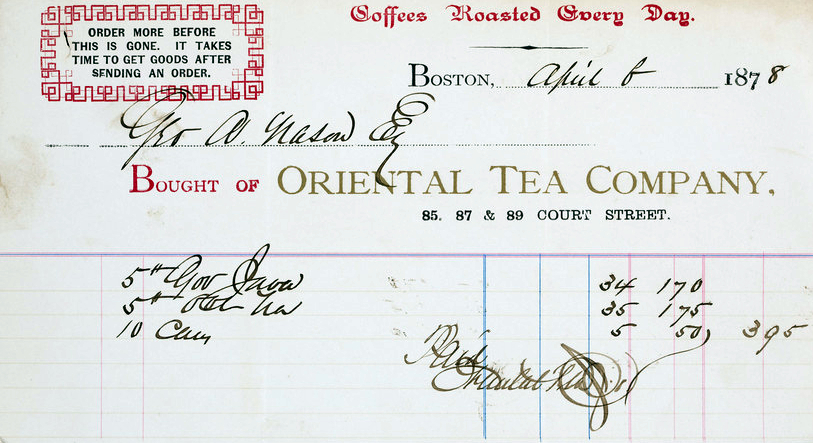 Coffees Roasted Every Day.
ORDER MORE BEFORE
THIS IS GONE. IT TAKES
TIME TO GET GOODS AFTER
SENDING AN ORDER.
BOSTON, April 6 1878
Geo A. Nason Esq
BOUGHT OF ORIENTAL TEA COMPANY,
85. 87 & 89 COURT STREET.
5 # Gov Java 34 170
5 # 35 175
10 Cans 5 50) 395
Paid
Oriental Tea